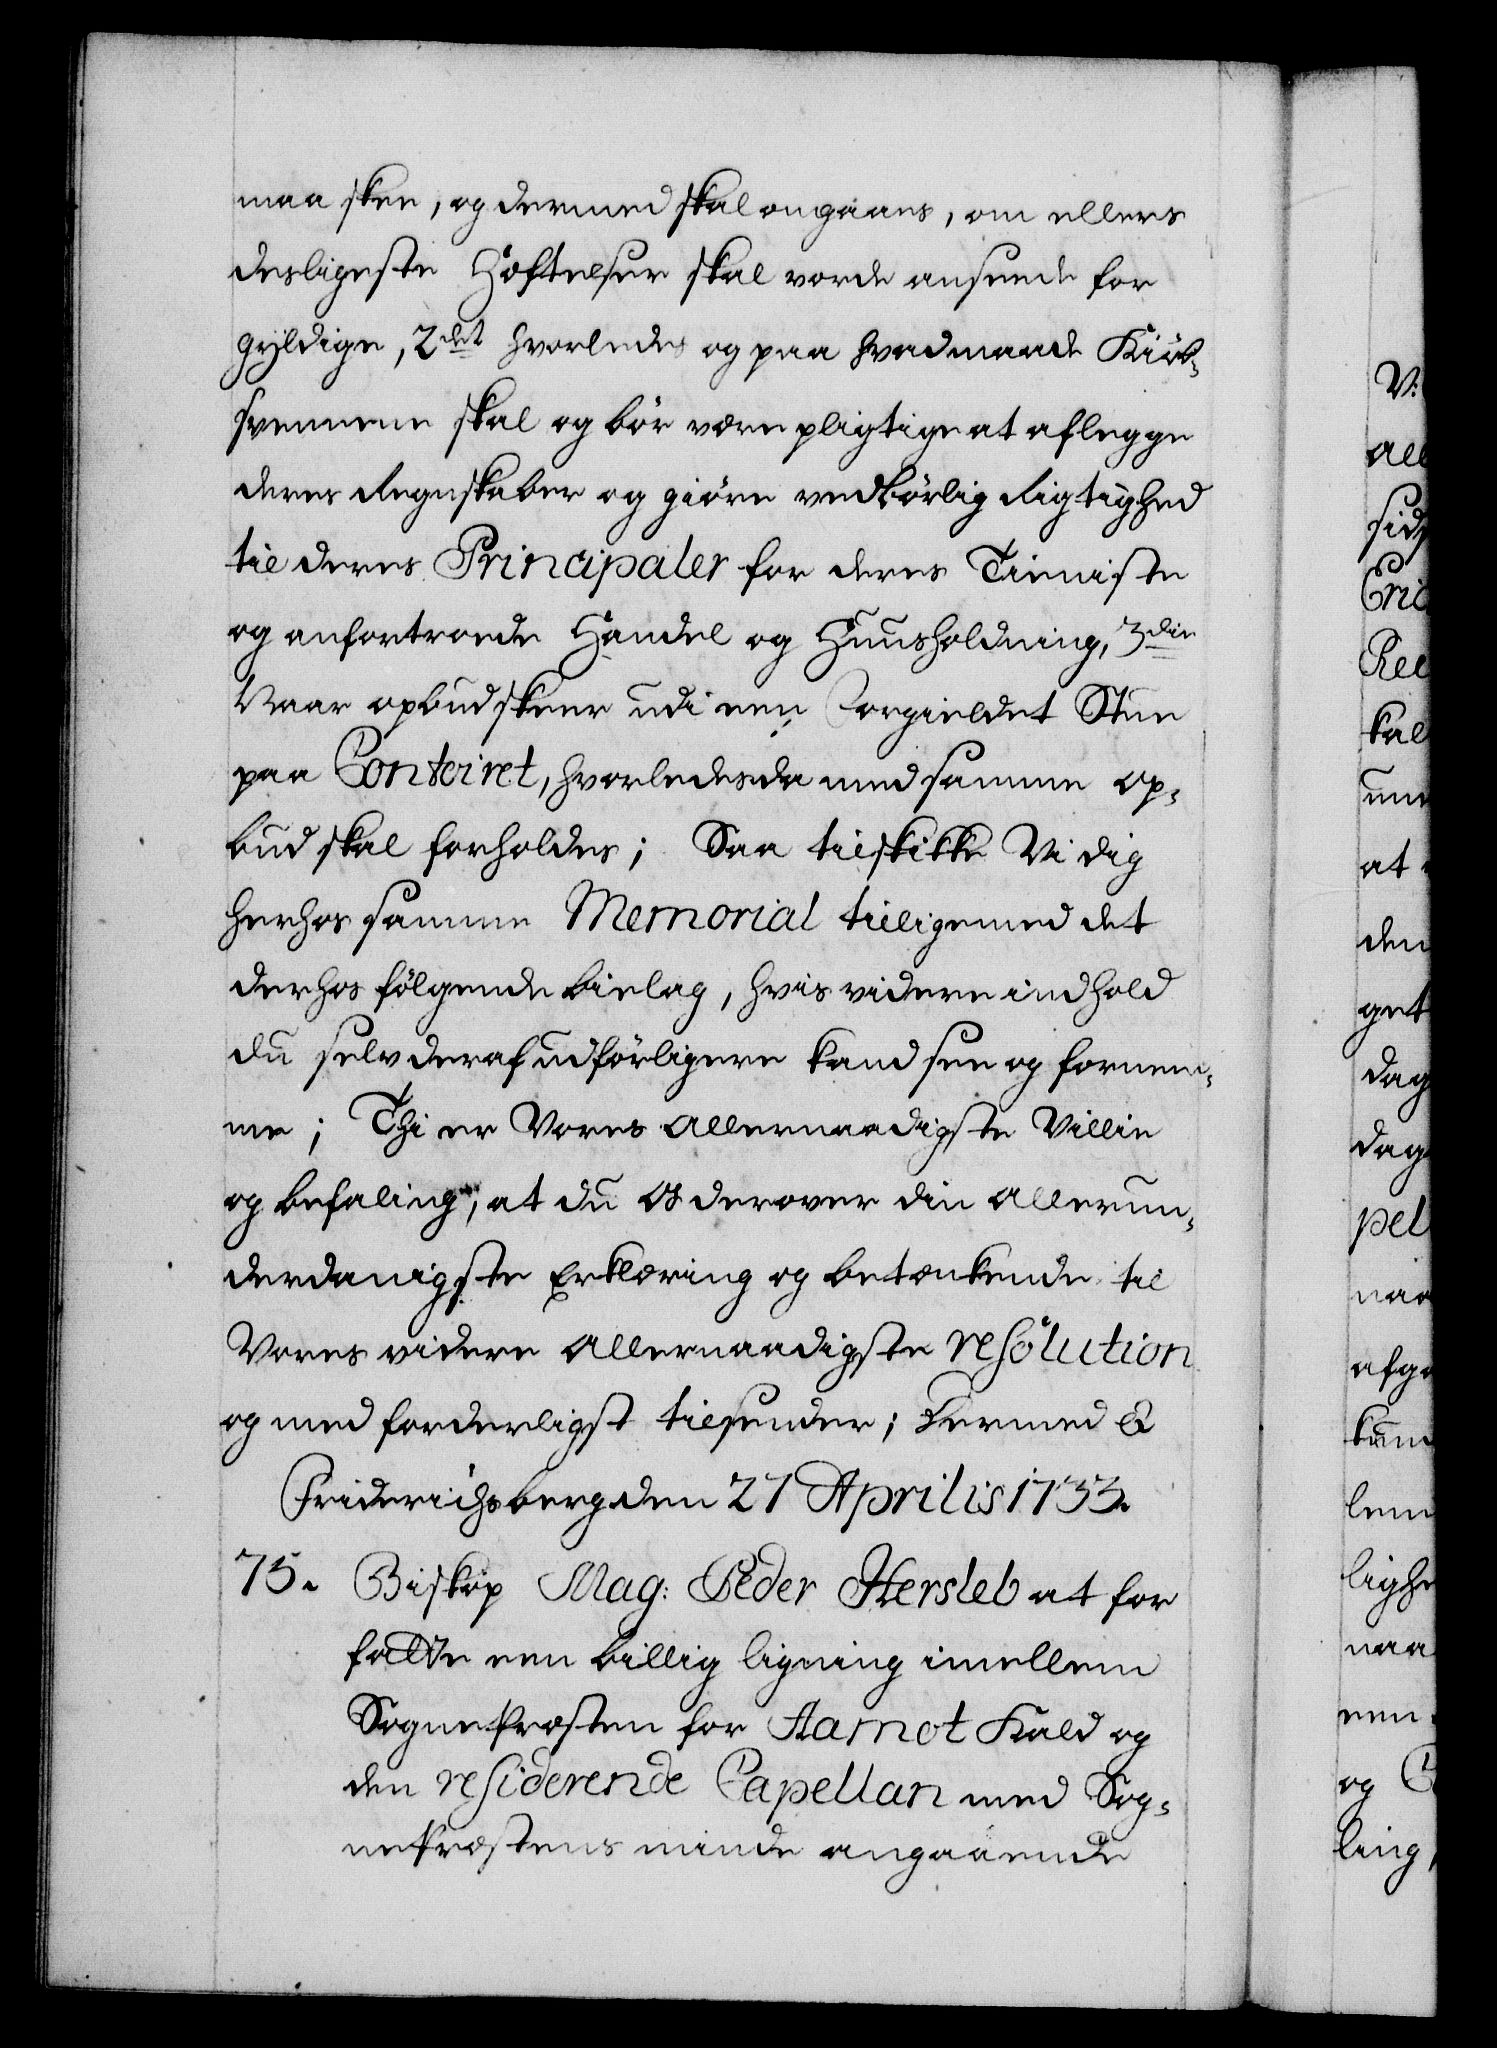 maa skee, og dermed skal omgaaes, om ellers
desligeste Hæftelser skal vorde ansee​nde for
gyldige, 2det hvorledes og paa hvad maade Kiöb-
svennene skal og bör være pligtige at aflegge
deres Regnskaber og giöre vedbörlig Rigtighed
til deres Principaler for deres Tieniste
og anfortroede Handel og Huusholdning, 3die
Naar opbud skeer udi een Forgieldet Stue
paa Contoiret, hvorledes da med samme op-
bud skal forholdes; Saa tilskikke Vi dig
herhos samme Memorial tilligemed det
derhos fölgende bielag, hvis videre indhold
du selv deraf udförligere kand see og fornem-
me; Thi er Vores allernaadigste Villie
og befaling, at du Os derover din allerun-
derdanigste Erklæring og betænkende til
Vores videre allernaadigste resolution
og med forderligst tilsender; Dermed &
Friderichsberg den 27 Aprilis 1733.
75. Biskop Mag: Peder Hersleb at for
fatte een billig ligning imellem
SognePræsten for Aamot Kald og
den residerende Capellan med Sog-
nePræstens minde angaaende
V:
all
sid
Eric
Rel
kal
at
den
get
dag
dag
pel
naa
afga
lem
lighe
naa
een
og C
ling,